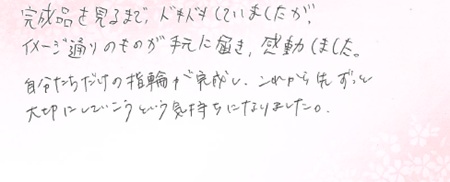 完成品を見るまで、ドキドキしていましたが、
イメージ通りのものが手元に届き、感動しました。
自分たちだけの指輪が完成し、これから先ずっと
大切にしていこうという気持ちになりました。